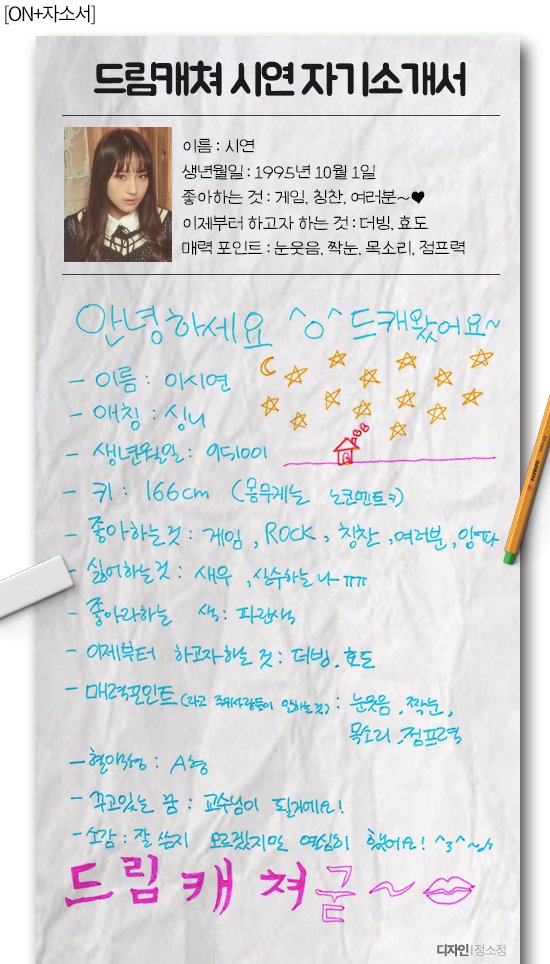 [ON+자소서]
드림캐쳐 시연 자기소개서
이름 : 시연
생년월일 : 1995년 10월 1일
좋아하는 것 : 게임, 칭찬, 여러분~♥
이제부터 하고자 하는 것 : 더빙, 효도
매력 포인트 : 눈웃음, 짝눈, 목소리, 점프력
안녕하세요 ^o^ 드캐왔어요~
- 이름 : 이시연
- 애칭 : 싱니
- 생년월일 : 951001
- 키 : 166cm (몸무게는 노코멘트ㅋ)
- 좋아하는것 : 게임, ROCK, 칭찬, 여러분, 양파
- 싫어하는것 : 새우, 실수하는 나 ㅠㅠ
- 좋아라하는 색 : 파란색
- 이제부터 하고자하는 것 : 더빙, 효도
- 매력포인트 (라고 주위사람들이 말하는것) : 눈웃음, 짝눈,
목소리, 점프력
- 혈액형 : A형
- 꾸고있는 꿈 : 교수님이 될거에요!
- 소감 : 잘 쓴지 모르겠지만 열심히 했어요! ^3^~♪
드림캐쳐굳~
디자인 | 정소정